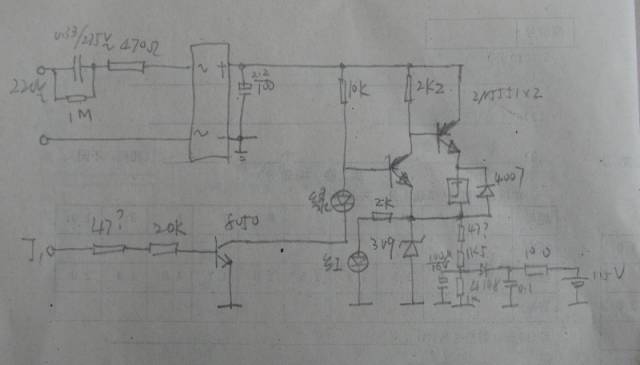 0.33/275V
470Ω
220V
1M
~
+
~
2.2
100
10K
2K2
2N5551×2
4007
绿
2K
红
3V9
47?
1K5
100μ
16V
4148
1K
0.1
100
1.5V
J1
47?
20K
8050